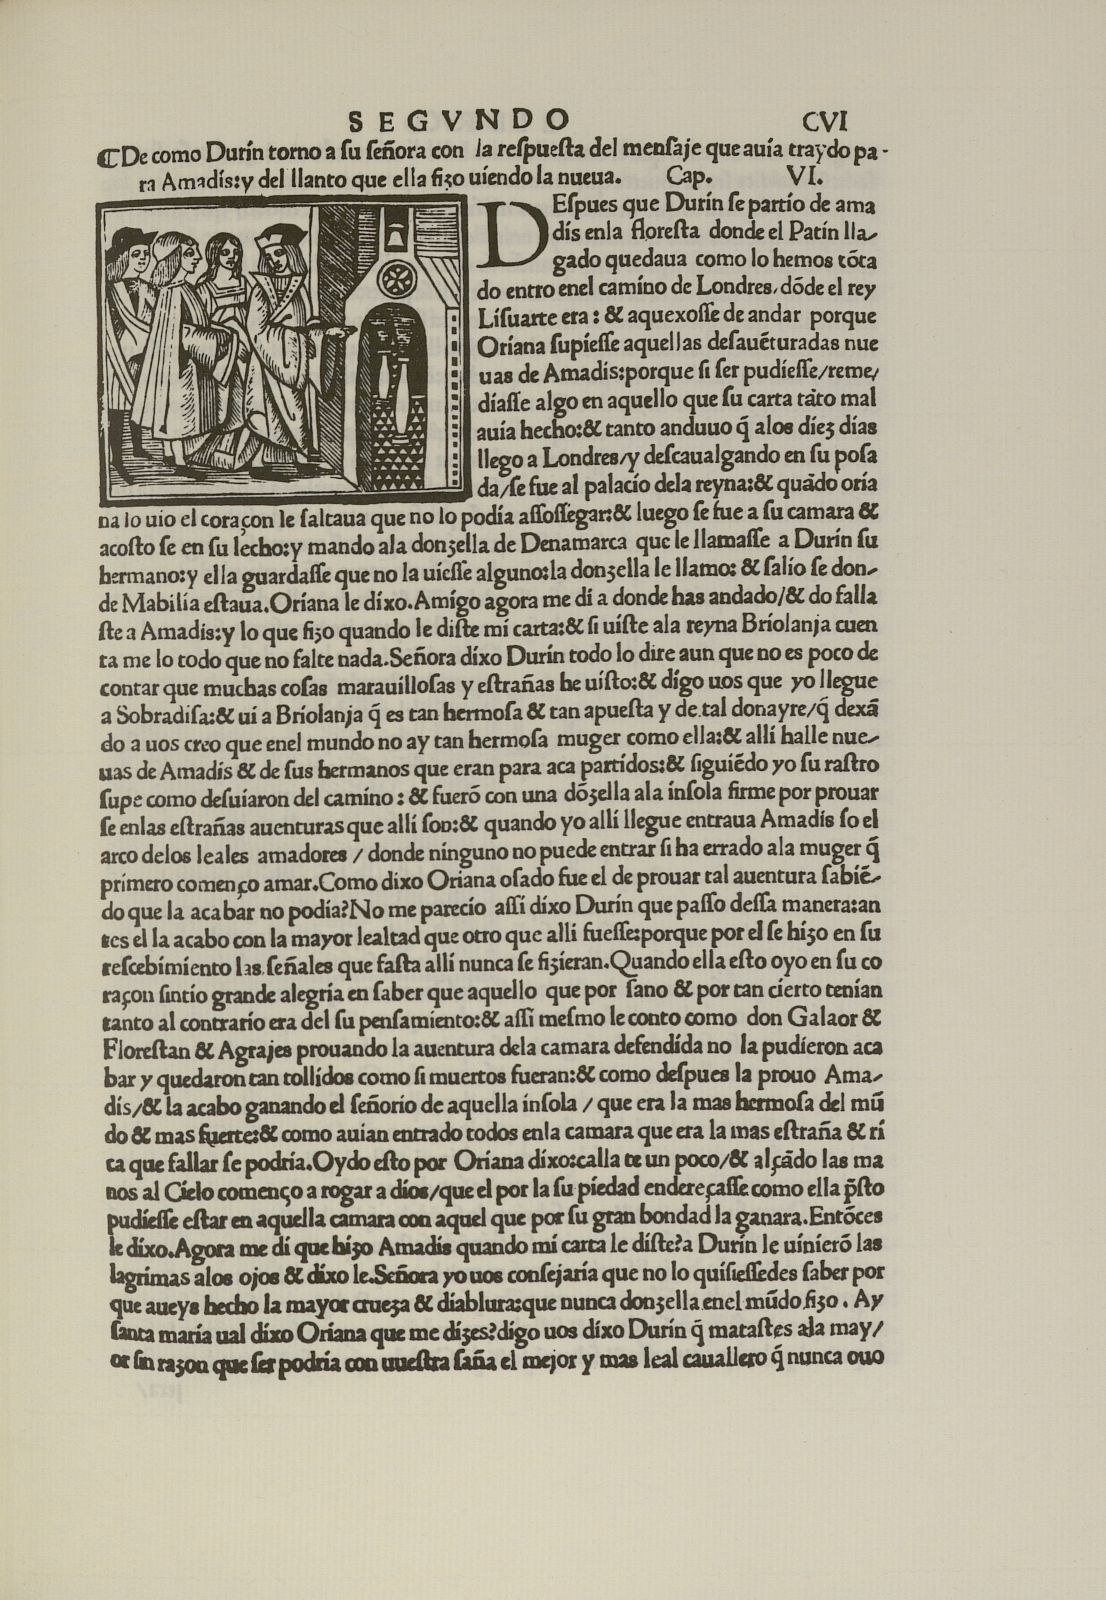 SEGVNDO CVI
¶De como Durin torno a su señora con la respuesta del mensaje que auia traydo pa-
ra Amadis:y del llanto que ella fizo uiendo la nueua. Cap. VI.
DEspues que Durin se partio de ama
dis enla floresta donde el Patin lla-
gado quedaua como lo hemos cõta
do entro enel camino de Londres, dõde el rey
Lisuarte era: & aquexosse de andar porque
Oriana supiesse aquellas desauẽturadas nue
uas de Amadis:porque si ser pudiesse/reme/
diasse algo en aquello que su carta tãto mal
auia hecho:& tanto anduuo q̃ alos diez dias
llego a Londres/y descaualgando en su posa
da/se fue al palacio dela reyna:& quãdo oria
na lo uio el coraçon le saltaua que no lo podia assossegar:& luego se fue a su camara &
acosto se en su lecho:y mando ala donzella de Denamarca que le llamasse a Durin su
hermano:y ella guardasse que no la uiesse alguno:la donzella le llamo: & salio se don-
de Mabilia estaua.Oriana le dixo.Amigo agora me di a donde has andado/& do falla
ste a Amadis:y lo que fizo quando le diste mi carta:& si uiste ala reyna Briolanja cuen
ta me lo todo que no falte nada.Señora dixo Durin todo lo dire aun que no es poco de
contar que muchas cosas marauillosas y estrañas he uisto:& digo uos que yo llegue
a Sobradisa:& ui a Briolanja q̃ es tan hermosa & tan apuesta y de tal donayre/q̃ dexã
do a uos creo que enel mundo no ay tan hermosa muger como ella:& alli halle nue-
uas de Amadis & de sus hermanos que eran para aca partidos:& siguiẽdo yo su rastro
supe como desuiaron del camino: & fuerõ con una dõzella ala insola firme por prouar
se enlas estrañas auenturas que alli son:& quando yo alli llegue entraua Amadis so el
arco delos leales amadores / donde ninguno no puede entrar si ha errado ala muger q̃
primero començo amar.Como dixo Oriana osado fue el de prouar tal auentura sabiẽ-
do que la acabar no podia?No me parecio assi dixo Durin que passo dessa manera:an
tes el la acabo con la mayor lealtad que otro que alli fuesse:porque por el se hizo en su
rescebimiento las señales que fasta alli nunca se fizieran.Quando ella esto oyo en su co
raçon sintio grande alegria en saber que aquello que por sano & por tan cierto tenian
tanto al contrario era del su pensamiento:& assi mesmo le conto como don Galaor &
Florestan & Agrajes prouando la auentura dela camara defendida no la pudieron aca
bar y quedaron tan tollidos como si muertos fueran:& como despues la prouo Ama-
dis/& la acabo ganando el señorio de aquella insola / que era la mas hermosa del mũ
do & mas fuerte:& como auian entrado todos enla camara que era la mas estraña & ri
ca que fallar se podria.Oydo esto por Oriana dixo:calla te un poco/& alçãdo las ma
nos al Cielo començo a rogar a dios/que el por la su piedad endereçasse como ella p̃sto
pudiesse estar en aquella camara con aquel que por su gran bondad la ganara.Entõces
le dixo.Agora me di que hizo Amadis quando mi carta le diste?a Durin le uinierõ las
lagrimas alos ojos & dixo le.Señora yo uos consejaria que no lo quisiessedes saber por
que aueys hecho la mayor crueza & diablura:que nunca donzella enel mũdo fizo. Ay
santa maria ual dixo Oriana que me dizes?digo uos dixo Durin q̃ matastes ala may/
or sin razon que ser podria con uuestra saña el mejor y mas leal cauallero q̃ nunca ouo